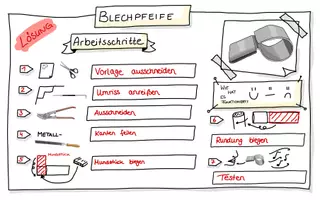 BLECHPFEIFE
LÖSUNG
Arbeitsschritte
1 Vorlage ausschneiden
2 Umriss anreißen
3 Ausschneiden
4 METALL- Kanten feilen
5 MUNDSTÜCK Mundstück biegen
WIE
HAT
ES
FUNKTIONIERT?
6
Rundung biegen
7
Testen